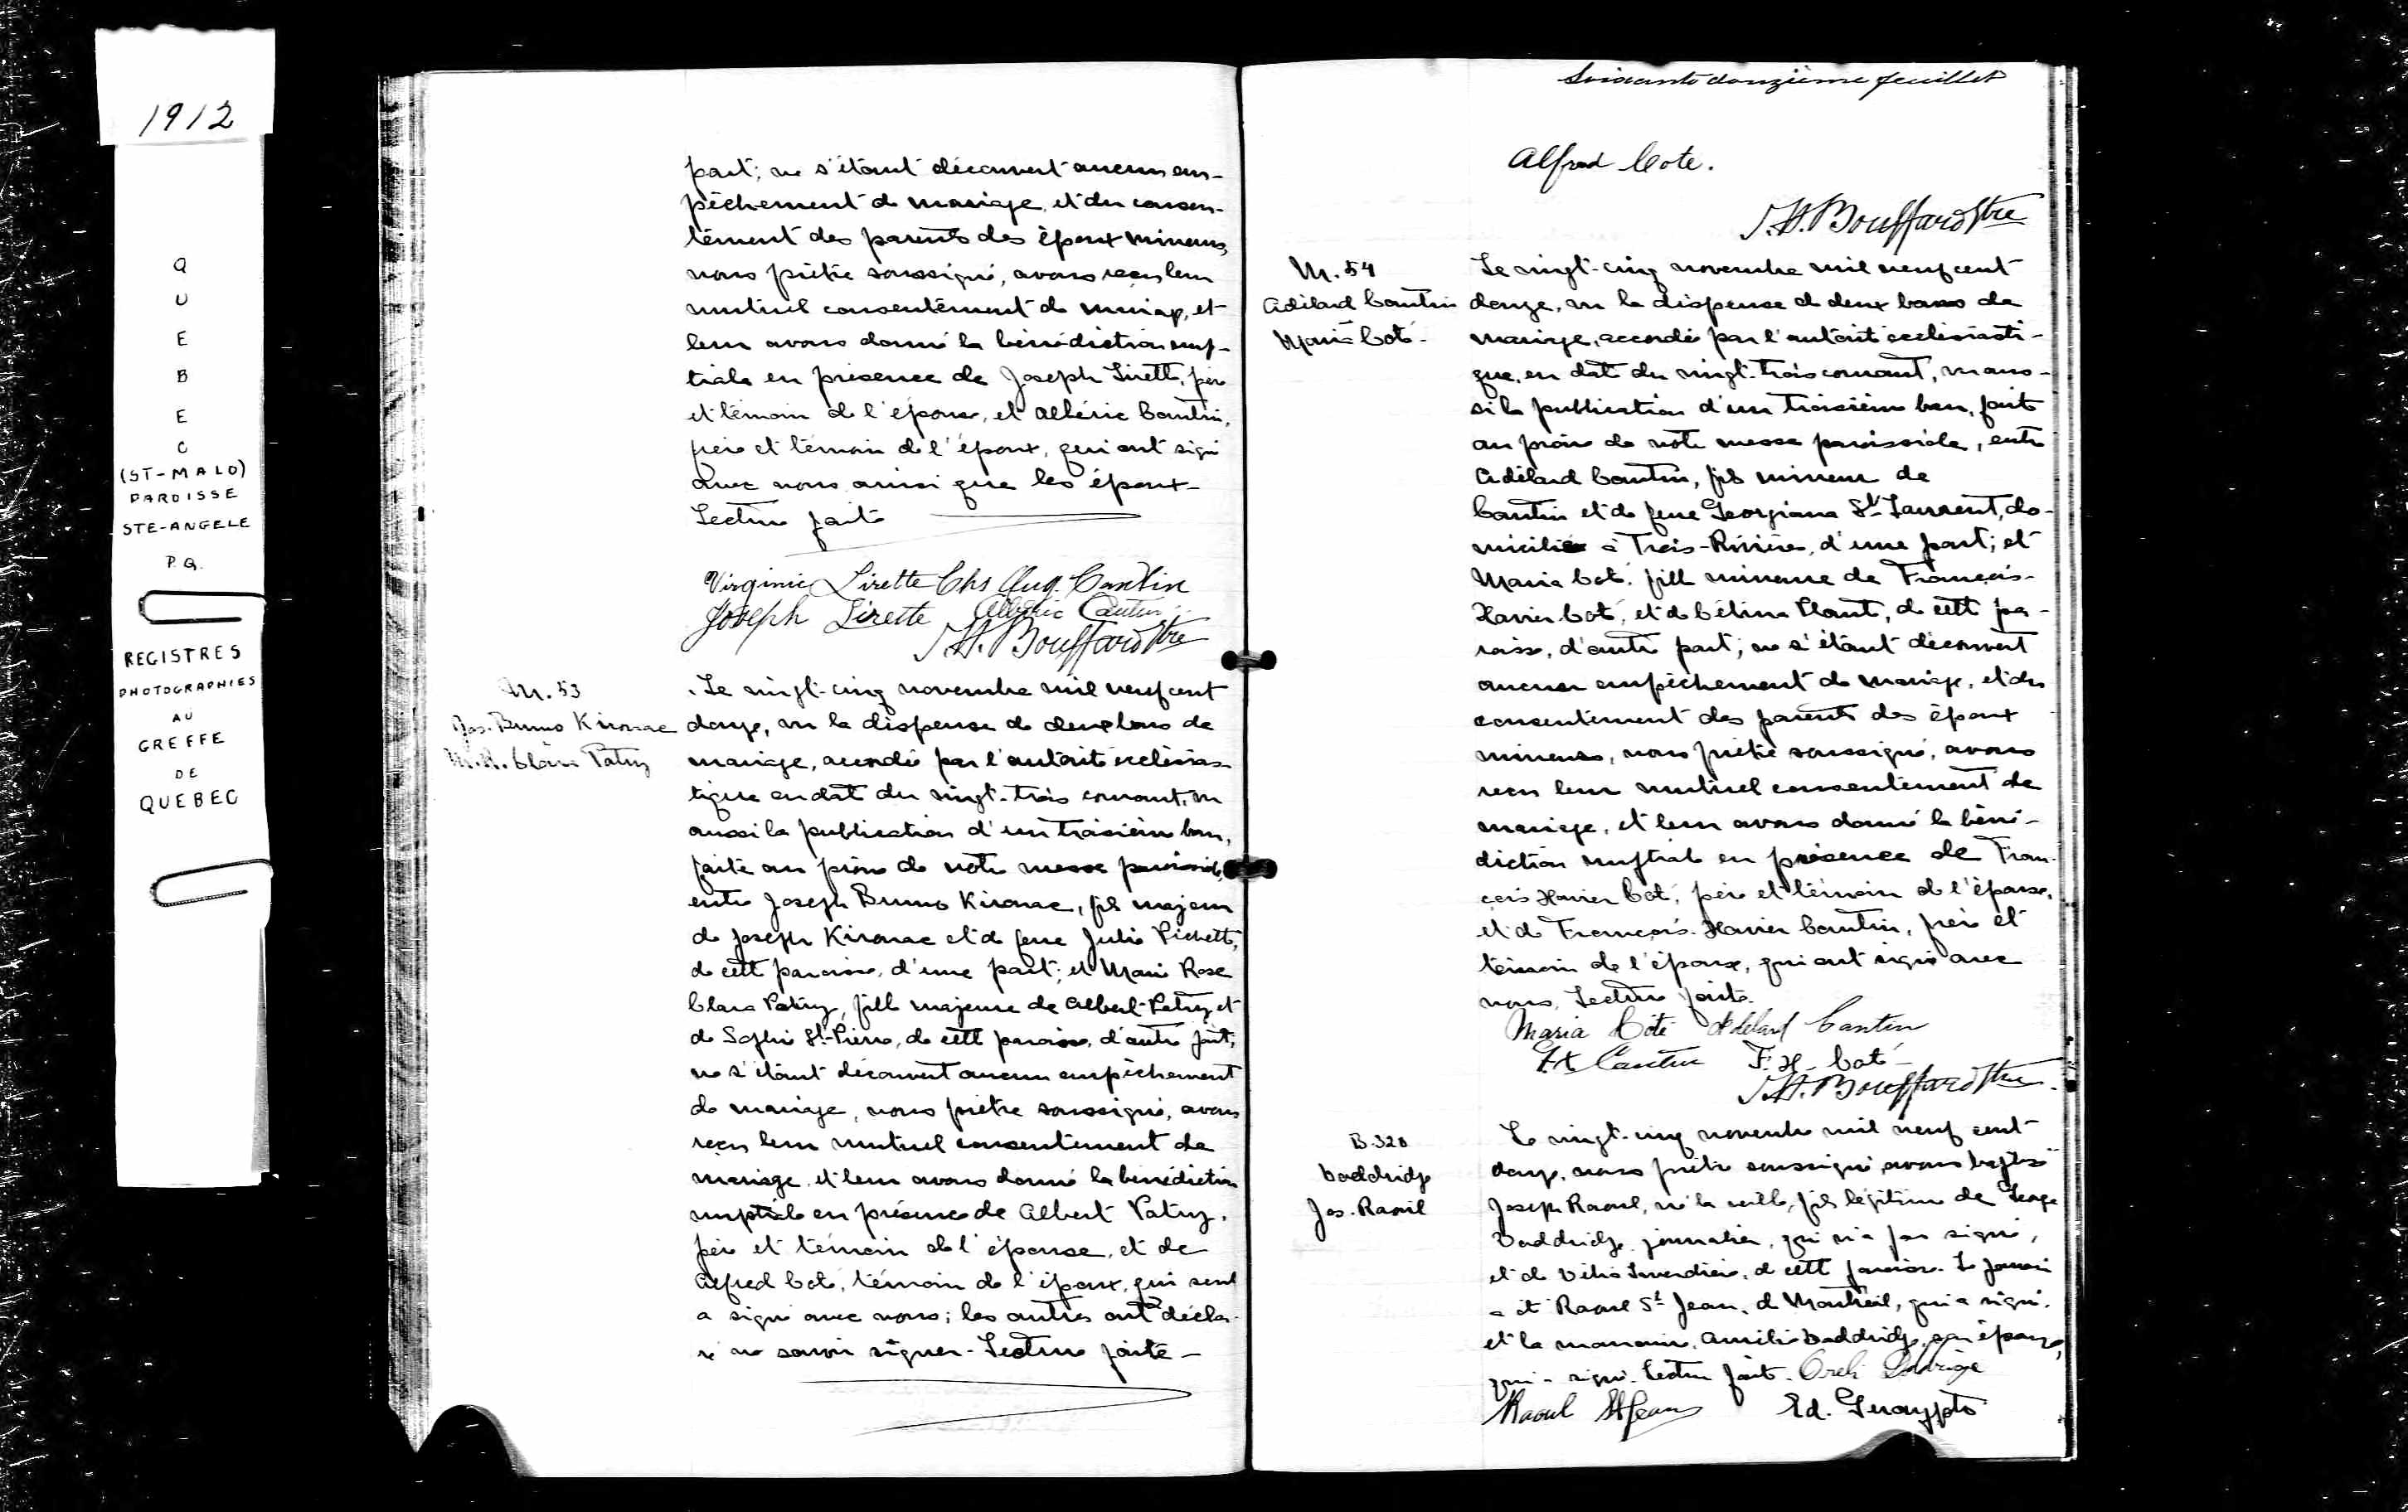 1912
QUEBEC
(ST-MALO)
PAROISSE
STE-ANGELE
P.Q.
REGISTRES
PHOTOGRAPHIES
AU
GREFFE
DE
QUEBEC
part; ne s'étant découvert aucun em-
pêchement de mariage, et du consen-
tement des parents des époux mineurs,
nous prêtre soussigné, avons reçu leur
mutuel consentement de mariage, et
leur avons donné la bénédiction nup-
tiale en présence de Joseph Lirette, père
et témoin de l'épouse, et Albéric Cantin,
père et témoin de l'époux, qui ont signé
avec nous ainsi que les époux-
Lecture faite
Virginie Lirette Chs Aug. Cantin
Joseph Lirette Albéric Cantin
J.H. Bouffard Ptre
M. 53
Jos. Bruno Kirouac
M.R. Clara Patry
Le vingt-cinq novembre mil neuf cent
douze, vu la dispense de deux bans de
mariage, accordée par l'autorité ecclésias-
tique en date du vingt-trois courant, vu
aussi la publication d'un troisième ban,
faite au prône de notre messe paroissiale,
entre Joseph Bruno Kirouac, fils majeur
de Joseph Kirouac et de feue Julie Pichette,
de cette paroisse, d'une part; et Marie Rose
Clara Patry, fille majeure de Albert Patry et
de Sophie St-Pierre, de cette paroisse, d'autre part;
ne s'étant découvert aucun empêchement
de mariage, nous prêtre soussigné, avons
reçu leur mutuel consentement de
mariage, et leur avons donné la bénédiction
nuptiale en présence de Albert Patry,
père et témoin de l'épouse, et de
Alfred Coté, témoin de l'époux, qui seul
a signé avec nous; les autres ont décla-
ré ne savoir signer. Lecture faite-
Soixante douzième feuillet
Alfred Cote.
J.H. Bouffard Ptre
M. 54
Adélard Cantin
Maria Coté-
Le vingt-cinq novembre mil neuf cent
douze, vu la dispense de deux bans de
mariage, accordée par l'autorité ecclésiasti-
que, en date du vingt-trois courant, vu aus-
si la publication d'un troisième ban, faite
au prône de notre messe paroissiale, entre
Adélard Cantin, fils mineur de
Cantin et de feue Georgiana St-Laurent, do-
micilié à Trois-Rivières, d'une part; et
Maria Coté, fille mineure de François-
Xavier Coté, et de Célina Plant, de cette pa-
roisse, d'autre part; ne s'étant découvert
aucun empêchement de mariage, et du
consentement des parents des époux
mineurs, nous prêtre soussigné, avons
reçu leur mutuel consentement de
mariage, et leur avons donné la béné-
diction nuptiale en présence de Fran-
çois Xavier Coté, père et témoin de l'épouse,
et de François-Xavier Cantin, père et
témoin de l'époux, qui ont signé avec
nous. Lecture faite.
Maria Côté Adélard Cantin
F.X Cantin F.X. Coté
J.H. Bouffard Ptre
B. 328
Doddridge
Jos. Raoul
Le vingt-cinq novembre mil neuf cent
douze, nous prêtre soussigné, avons baptisé
Joseph Raoul, né la veille, fils légitime de George
Doddridge, journalier, qui n'a pas signé,
et de Délia, de cette paroisse. Le parrain
a été Raoul St Jean, de Montréal, qui a signé,
et la marraine, Amélie Doddridge, son épouse,
qui a signé. Lecture faite.
Raoul St Jean Ed.